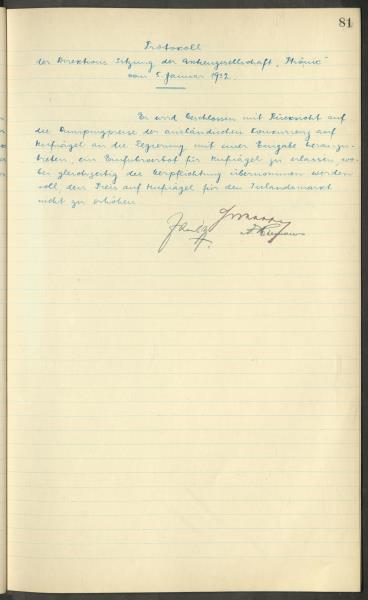 81
Protokoll
der Direktions Sitzung der Aktiengesellschaft „Phönix"
vom 5. Januar 1932.
Es wird beschlossen mit Rücksicht auf
die Dumpingpreise der ausländischen Concurrenz auf
Hufnägel an die Regierung mit einer Eingabe heranzu-
treten, ein Einfuhrverbot für Hufnägel zu erlassen, wo-
bei gleichzeitig die Verpflichtung übernommen werden
soll, den Preis auf Hufnägel für den Inlandsmarkt
nicht zu erhöhen.